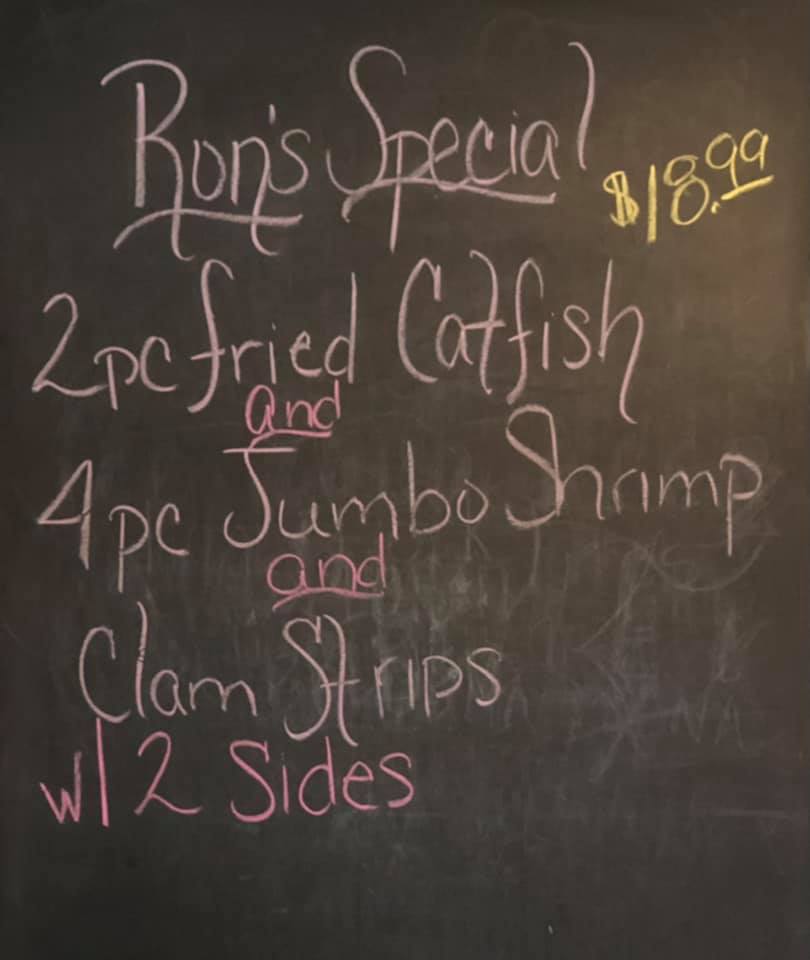 Ron's Special $18.99
2pc fried Catfish
and
4pc Jumbo Shrimp
and
Clam Strips
w/ 2 Sides